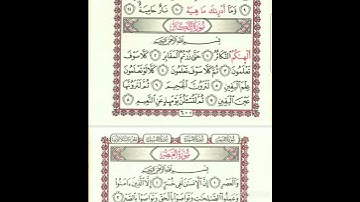 ٩ وَمَا أَدْرَىٰكَ مَا هِيَهْ ١٠ نَارٌ حَامِيَةٌ ١١
سُورَةُ التَّكَاثُرِ
بِسْمِ اللَّهِ الرَّحْمَٰنِ الرَّحِيمِ
أَلْهَىٰكُمُ التَّكَاثُرُ ١ حَتَّىٰ زُرْتُمُ الْمَقَابِرَ ٢ كَلَّا سَوْفَ
تَعْلَمُونَ ٣ ثُمَّ كَلَّا سَوْفَ تَعْلَمُونَ ٤ كَلَّا لَوْ تَعْلَمُونَ
عِلْمَ الْيَقِينِ ٥ لَتَرَوُنَّ الْجَحِيمَ ٦ ثُمَّ لَتَرَوُنَّهَا
عَيْنَ الْيَقِينِ ٧ ثُمَّ لَتُسْأَلُنَّ يَوْمَئِذٍ عَنِ النَّعِيمِ ٨
٦٠٠
سُورَةُ الْعَصْرِ
بِسْمِ اللَّهِ الرَّحْمَٰنِ الرَّحِيمِ
وَالْعَصْرِ ١ إِنَّ الْإِنْسَانَ لَفِي خُسْرٍ ٢ إِلَّا الَّذِينَ ءَامَنُوا
وَعَمِلُوا الصَّالِحَاتِ وَتَوَاصَوْا بِالْحَقِّ وَتَوَاصَوْا بِالصَّبْرِ ٣